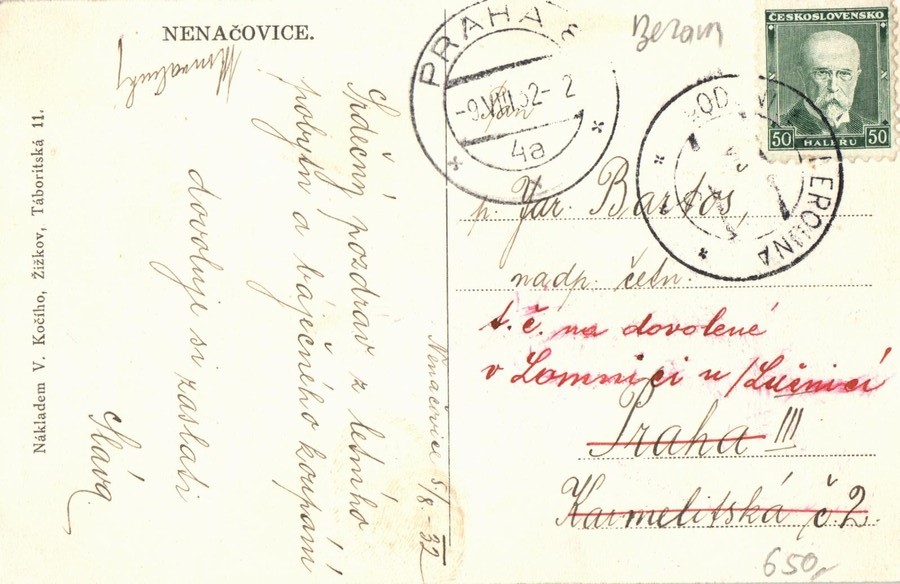 NENAČOVICE.
Nákladem V. Kočího, Žižkov, Táboritská 11.
Nenačovice 5/8 - 32
Srdečný pozdrav z letního
pobytu a báječného koupání
dovoluje si zaslati
Sláva
Beroun
ČESKOSLOVENSKO
50 HALÉŘŮ 50
PRAHA 3
-9.VIII.32-2
4a
EROUNA
Pan
p. Jar Bartoš,
nadp. četn.
t.č. na dovolené
v Lomnici n/Lužnicí
Praha III
Karmelitská č.2.
650,-